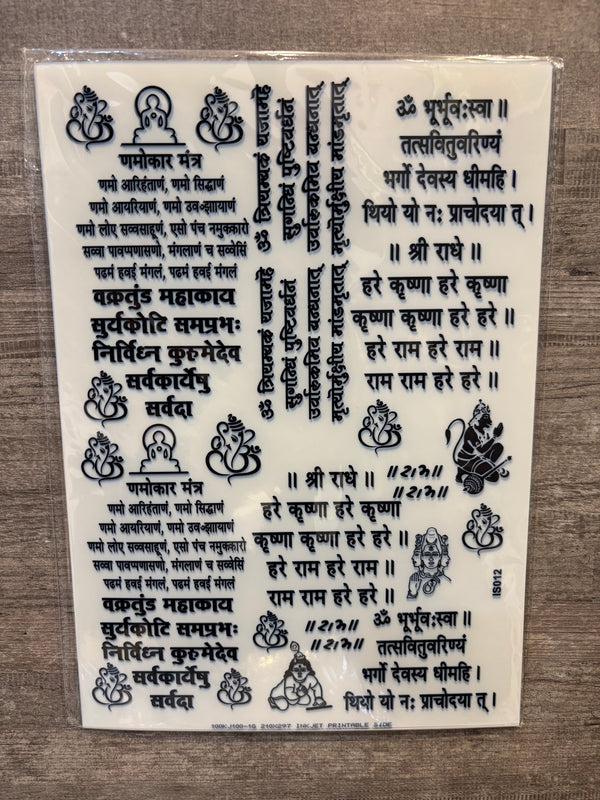 णमोकार मंत्र
णमो आरिहंताणं, णमो सिद्धाणं
णमो आयरियाणं, णमो उवज्झायाणं
णमो लोए सव्वसाहूणं, एसो पंच नमुक्कारो
सव्वा पावप्पणासणो, मंगलाणं च सव्वेसिं
पढमं हवई मंगलं, पढमं हवई मंगलं
वक्रतुंड महाकाय
सुर्यकोटि समप्रभः
निर्विध्न कुरुमेदेव
सर्वकार्येषु
सर्वदा
ॐ त्रियम्यकं यजामहे
सुगन्धिं पुष्टिवर्धनं
उर्वारुकमिव बन्धनात्
मृत्योर्मुक्षीय मांडमृतात्
ॐ त्रियम्यकं यजामहे
सुगन्धिं पुष्टिवर्धनं
उर्वारुकमिव बन्धनात्
मृत्योर्मुक्षीय मांडमृतात्
ॐ भूर्भूवःस्वा ॥
तत्सवितुवरिण्यं
भर्गो देवस्य धीमहि ।
थियो यो नः प्राचोदया त् ।
॥ श्री राधे ॥
हरे कृष्णा हरे कृष्णा
कृष्णा कृष्णा हरे हरे ॥
हरे राम हरे राम ॥
राम राम हरे हरे ॥
णमोकार मंत्र
णमो आरिहंताणं, णमो सिद्धाणं
णमो आयरियाणं, णमो उवज्झायाणं
णमो लोए सव्वसाहूणं, एसो पंच नमुक्कारो
सव्वा पावप्पणासणो, मंगलाणं च सव्वेसिं
पढमं हवई मंगलं, पढमं हवई मंगलं
वक्रतुंड महाकाय
सुर्यकोटि समप्रभः
निर्विध्न कुरुमेदेव
सर्वकार्येषु
सर्वदा
॥ श्री राधे ॥
हरे कृष्णा हरे कृष्णा
कृष्णा कृष्णा हरे हरे ॥
हरे राम हरे राम ॥
राम राम हरे हरे ॥
॥ राम ॥
॥ राम ॥
॥ राम ॥
॥ राम ॥
IS012
ॐ भूर्भूवःस्वा ॥
तत्सवितुवरिण्यं
भर्गो देवस्य धीमहि ।
थियो यो नः प्राचोदया त् ।
100KJ100-1G 210X297 INKJET PRINTABLE SIDE